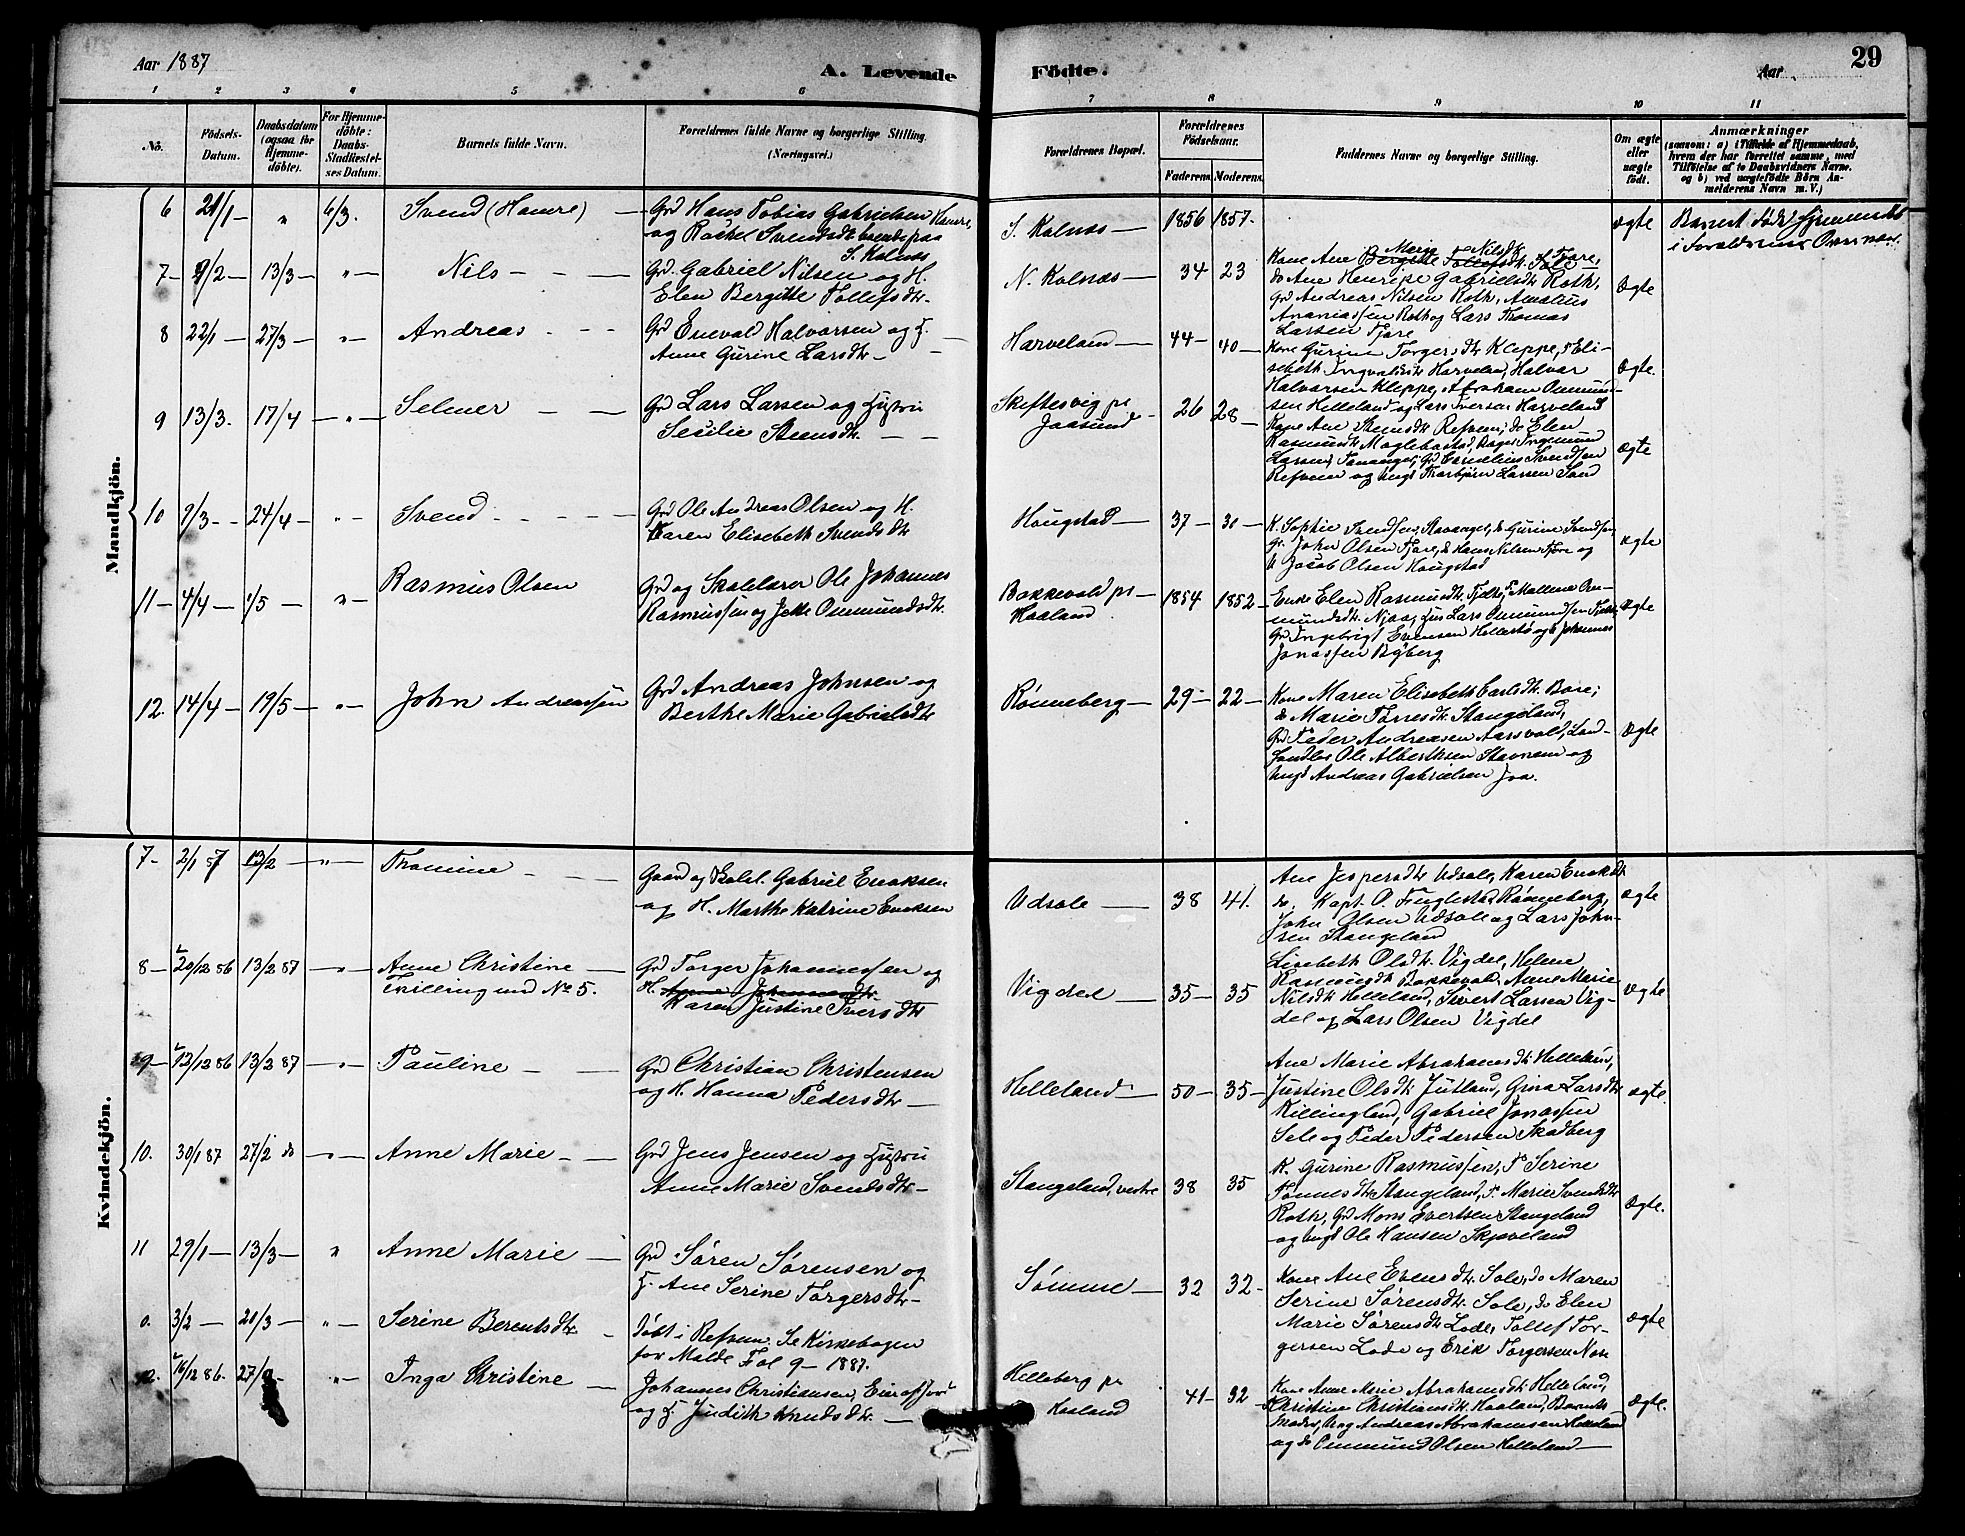 Aar 1887
A. Levende
Födte.
29
Aar
1 2 3 4 5 6 7 8 9 10 11
No.
Födsels-
Datum.
Daabsdatum
(ogsaa for
Hjemme-
döbte).
For Hjemme-
döbte:
Daabs-
Stadfæstel-
ses Datum.
Barnets fulde Navn.
Forældrenes fulde Navne og borgerlige Stilling.
(Næringsvei.)
Forældrenes Bopæl.
Forældrenes
Födselsaar.
Faderens. Moderens.
Faddernes Navne og borgerlige Stilling.
Om ægte
eller
uægte
födt.
Anmærkninger
(saasom: a) i Tilfælde af Hjemmedaab,
hvem der har forrettet samme, med
Tilföielse af to Daabsvidners Navne,
og b) ved uægtefödte Börn An-
melderens Navn m. V.)
Mandkjön.
6 21/1 — " 6/3. Svend (Hamre) —
Grd Hans Tobias Gabrielsen Hamre,
og Rakel Svendsdtr boende paa
S. Kolnæs
S. Kolnæs — 1856 1857.
ægte
Barnet født
7 — 9/2 — 13/3 — " — Nils — —
Grd. Gabriel Nilsen og H.
Elen Bergitte Tollefsdtr.
N. Kolnæs — 34 23
Kone Ane Marie Nilsdtr. Tjore,
do Ane Henrike Gabrielsdtr Roth,
Grd Andreas Nilsen Roth, Amalius
Ananiassen Roth og Lars Thomas
Larsen Tjore
Ægte
8 22/1 — 27/3 — " — Andreas — —
Grd Eneval Halvorsen og H.
Anne Gurine Larsdtr —
Harveland — 44 — 40 —
Kone Gurine Torgersdtr Kleppe, P Eli-
sebeth Ingvaldsdtr Harveland, Halvor
Halvorsen Kleppe, Abraham Ommund-
sen Helleland og Lars Iversen Harveland
Ægte.
9 13/3. 17/4 — " — Selmer — —
Grd Lars Larsen og Hustru
Secilie Steensdtr. — —
Skiftesvig pr
Jaasund — 26 28 —
Kone Ane Steensdtr Refsnes, do Elen
Rasmusdtr Maglebostad,
Larsen, Tananger, Grd Cornelius Svendsen
Refsnes og Ungk Thorbjørn Larsen Sand
ægte
10 7/3 — 24/4 — " — Svend — —
Grd Ole Andreas Olsen og H.
Karen Elisebeth Svendsdtr
Hougstad — 37 — 31 —
K. Sophie Svendsen, Stavanger, do Gurine Svendsen,
Gr. John Olsen Tjore, do Hans Nilsen Tjore og
do Jacob Olsen Hougstad
ægte
11 — 4/4 — 1/5 — " — Rasmus Olsen
Grd og Skolelærer Ole Johannes
Rasmussen og Jette Ommundsdtr.
Bakkevold pr —
Haaland. 1854 1852 —
Enke Elen Rasmusdtr. Tjelte, P Mallene Om-
mundsdtr. Njaa, Hus Lars Ommundsen Tjelte,
Grd Ingebrigt Evensen Hellestø og do Johannes
Jonassen Byberg
Ægte
12. 14/4 — 19/5 — " — John Andreassen
Grd Andreas Johnsen og
Berthe Marie Gabrielsdtr
Rønneberg — 29 — 22 —
Kone Maren Elisebeth Carlsdtr. Bore,
do Marie Torresdtr. Stangeland,
Grd Peder Andreasen Aarsvold, Lan-
handler Ole Albertsen Stavnem og
Ungk Andreas Gabrielsen Joa.
Ægte
Kvindekjön.
7 — 2/1 87 13/2 — " — Tromine — —
Gaard og Skolel. Gabriel Enoksen
og H. Marthe Katrine Enoksen
Udsole — 38 41.
Ane Jespersdtr Udsole, Karen Enoksdtr
do, Kapt. O. Fuglestad Rønneberg,
John Olsen Udsole og Lars John-
sen Stangeland
ægte
8 — 20/12 86 13/2 87 — " — Anne Christine —
Tvilling med No 5.
Grd Torger Johannessen og
H. Karen Justine Iversdtr
Vigdel — 35 — 35
Lisebeth Olsdtr. Vigdel, Helene
Rasmusdtr Bakkevold, Anne Marie
Nilsdtr Helleland, Sivert Larsen Vig-
del og Lars Olsen Vigdel
Ægte
9 — 12/12 86 13/2 87 — " — Pauline — —
Grd Christian Christensen
og H. Hanna Pedersdtr —
Helleland — 50 — 35 —
Ane Marie Abrahamsdtr Helleland,
Justine Olsdtr Jutland, Gina Larsdtr
Killingland, Gabriel Jonassen
Sele og Peder Pedersen Skadberg
ægte.
10. 30/1 87 27/2 do — " — Anne Marie — —
Grd Jens Jensen og Hustru
Anne Marie Svendsdtr —
Stangeland, vestre 38 35
K. Gurine Rasmussen, P Serine
Tønnesdtr Stangeland, P. Marie Svendsdtr
Roth, Grd Mons Evertsen Stangeland
og Ungk Ole Hansen Skjæveland
Ægte.
11 29/1 — 13/3 — " Anne Marie —
Grd Søren Sørensen og
H. Ane Serine Torgersdtr —
Sømme — 32 32 —
Kone Ane Evensdtr. Sole, do Maren
Serine Sørensdtr. Sole, do Elen
Marie Sørensdtr Lode, Tollef Tor-
gersen Lode og Erik Torgersen Næse
Ægte
0. 3/2 — 20/3 — " — Serine Berentsdtr. —
Døbt i Refsnes. Se Kirkebogen
for Malde Fol 9 — 1887.
12. 16/12 86. 27/ — " — Inga Christine —
Johannes Christiansen,
og H. Judith Knudsdtr. —
Helleberg pr
Haaland 41 — 32 —
Kone Anne Marie Abrahamsdtr Helleland,
Christine Christiansdtr. Haaland, Barnets
Moder, Ung Andreas Abrahamsen Helleland
og do Ommund Olsen Helleland —
Ægte.